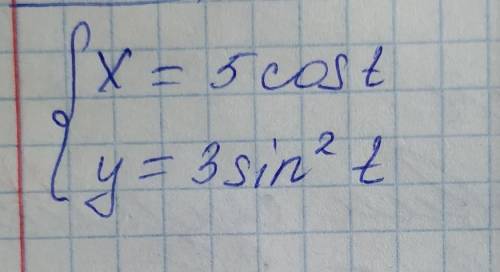 x = 5 cos t
y = 3 sin² t